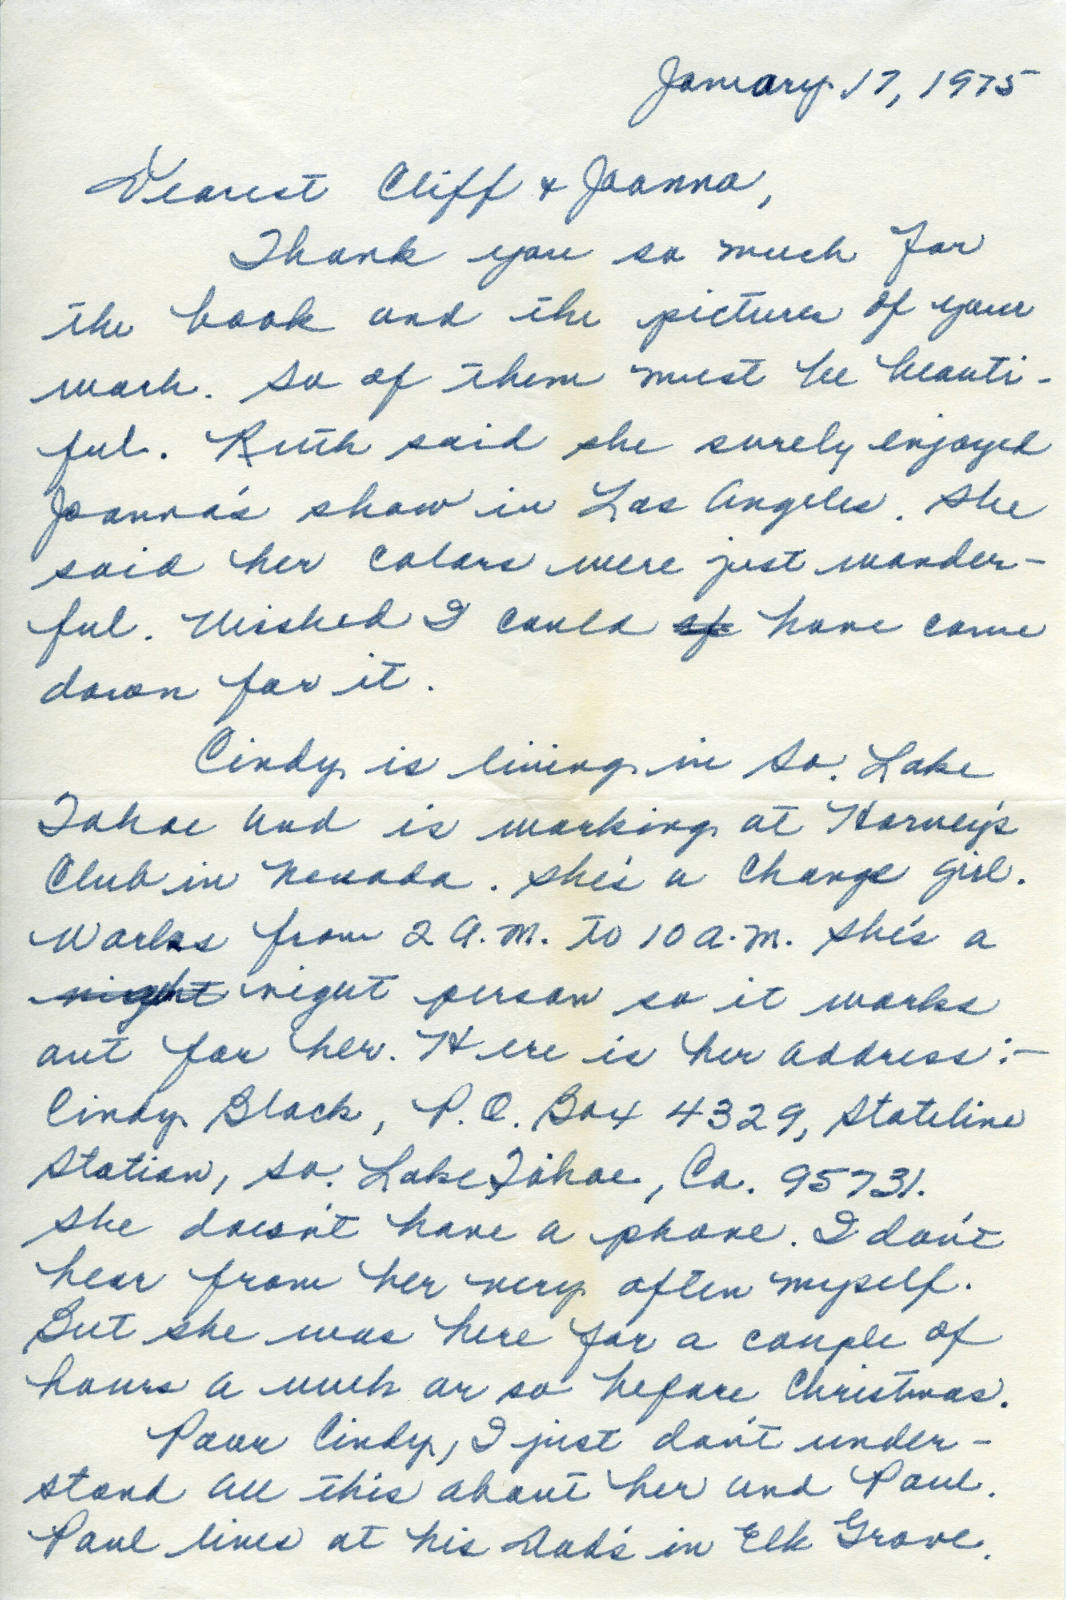 January 17, 1975
Dearest Cliff & Joanna,
Thank you so much for
the book and the pictures of your
work. So of them must be beauti-
ful. Ruth said she surely enjoyed
Joanna's show in Los Angeles. She
said her colors were just wonder-
ful. Wished I could of have come
down for it.
Cindy is living in So. Lake
Tahoe and is working at Harvey's
Club in Nevada. She's a Change girl.
Works from 2 A.M. to 10 A.M. She's a
night night person so it works
out for her. Here is her address:-
Cindy Black, P.O. Box 4329, Stateline
Station, So. Lake Tahoe, Ca. 95731.
She doesn't have a phone. I don't
hear from her very often myself.
But she was here for a couple of
hours a week or so before Christmas.
Poor Cindy, I just don't under-
stand all this about her and Paul.
Paul lives at his Dad's in Elk Grove.